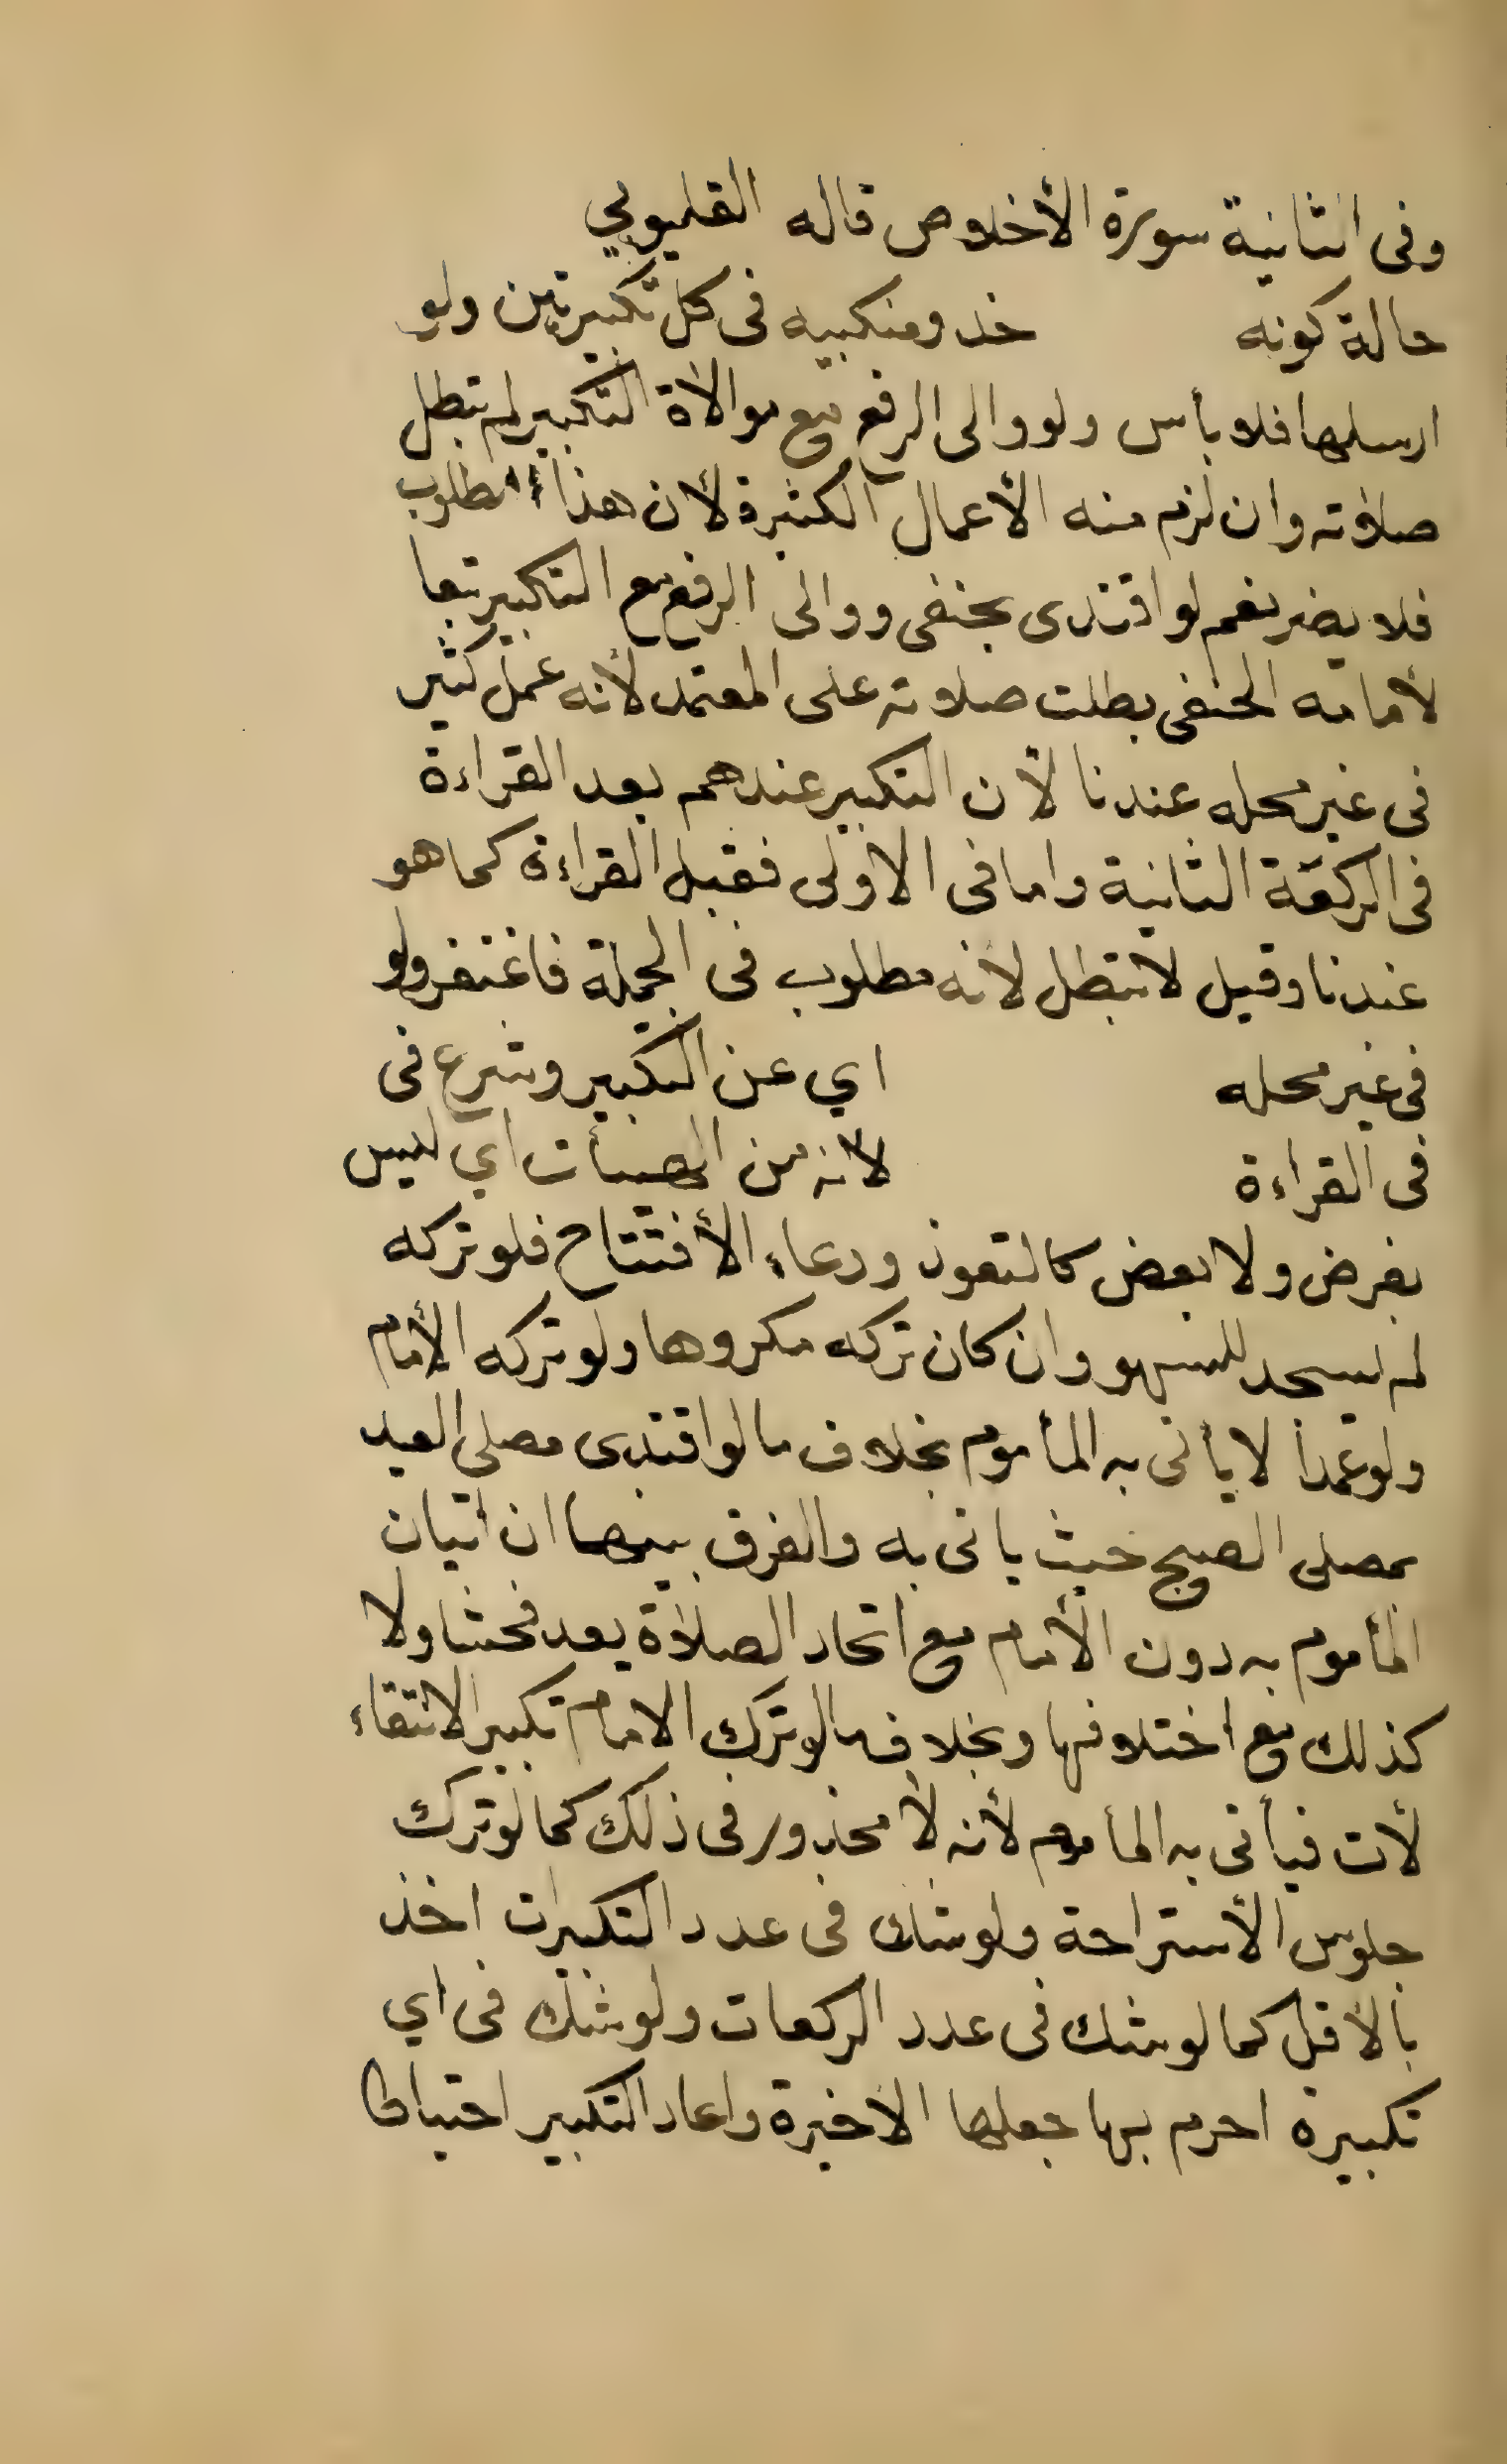 وفى الثانية سورة الأخلاص قاله القليوبي
حالة كونه خذ ومنكبيه فى كل تكبيرتين ولو
ارسلهما فلا بأس ولو والى الرفع مع موالاة التكبير لم تبطل
صلاته وان لزم منه الأعمال الكثيرة لأن هذا مطلوب
فلا يضر نعم لو اقتدى بحنفى ووالى الرفع مع التكبير تبعا
لأمامه الحنفى بطلت صلاته على المعتمد لأنه عمل كثير
فى غير محله عندنا لأن التكبير عندهم بعد القراءة
فى الركعة الثانية واما فى الاولى فقبل القراءة كما هو
عندنا وقيل لا تبطل لانه مطلوب فى الجملة فاغتفر ولو
فى غير محله اي عن التكبير وشرع فى
فى القراءة لانه من الهيئات اي ليس
بفرض ولا بعض كالتعوذ ودعاء الأفتتاح فلو تركه
لم يسجد للسهو وان كان تركه مكروها ولو تركه الأمام
ولو عمدا لا يأتى به المأموم بخلاف ما لو اقتدى مصلي العيد
بمصلى الصبح حيث ياتى به والفرق بينهما ان اتيان
المأموم به دون الأمام مع اتحاد الصلاة يعد فحشا ولا
كذلك مع اختلافها وبخلاف ما لو ترك الامام تكبير الانتقاء
لأت فيأتى به المأموم لأنه لا محذور فى ذلك كما لو ترك
جلوس الأستراحة ولو شك فى عدد التكبيرات اخذ
بالأقل كما لو شك فى عدد الركعات ولو شك فى اي
تكبيرة احرم بها جعلها الاخيرة واعاد التكبير احتياطا